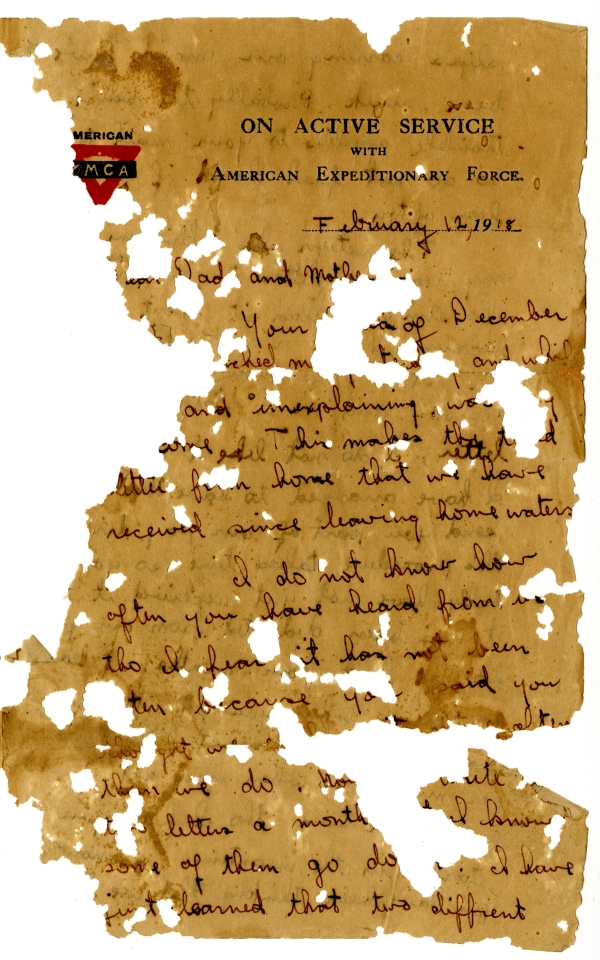 MERICAN
MCA
ON ACTIVE SERVICE
WITH
AMERICAN EXPEDITIONARY FORCE.
February 12, 1918
ear Dad and Mothe
Your of December
ched m and whil
and unexplaining
ame This makes the t d
letter from home that we have
received since leaving home waters
I do not know how
often you have heard from us
tho I fear it has not been
ten because you said you
ght we
than we do. write
letters a month I know
some of them go do . I have
just learned that two diffrent